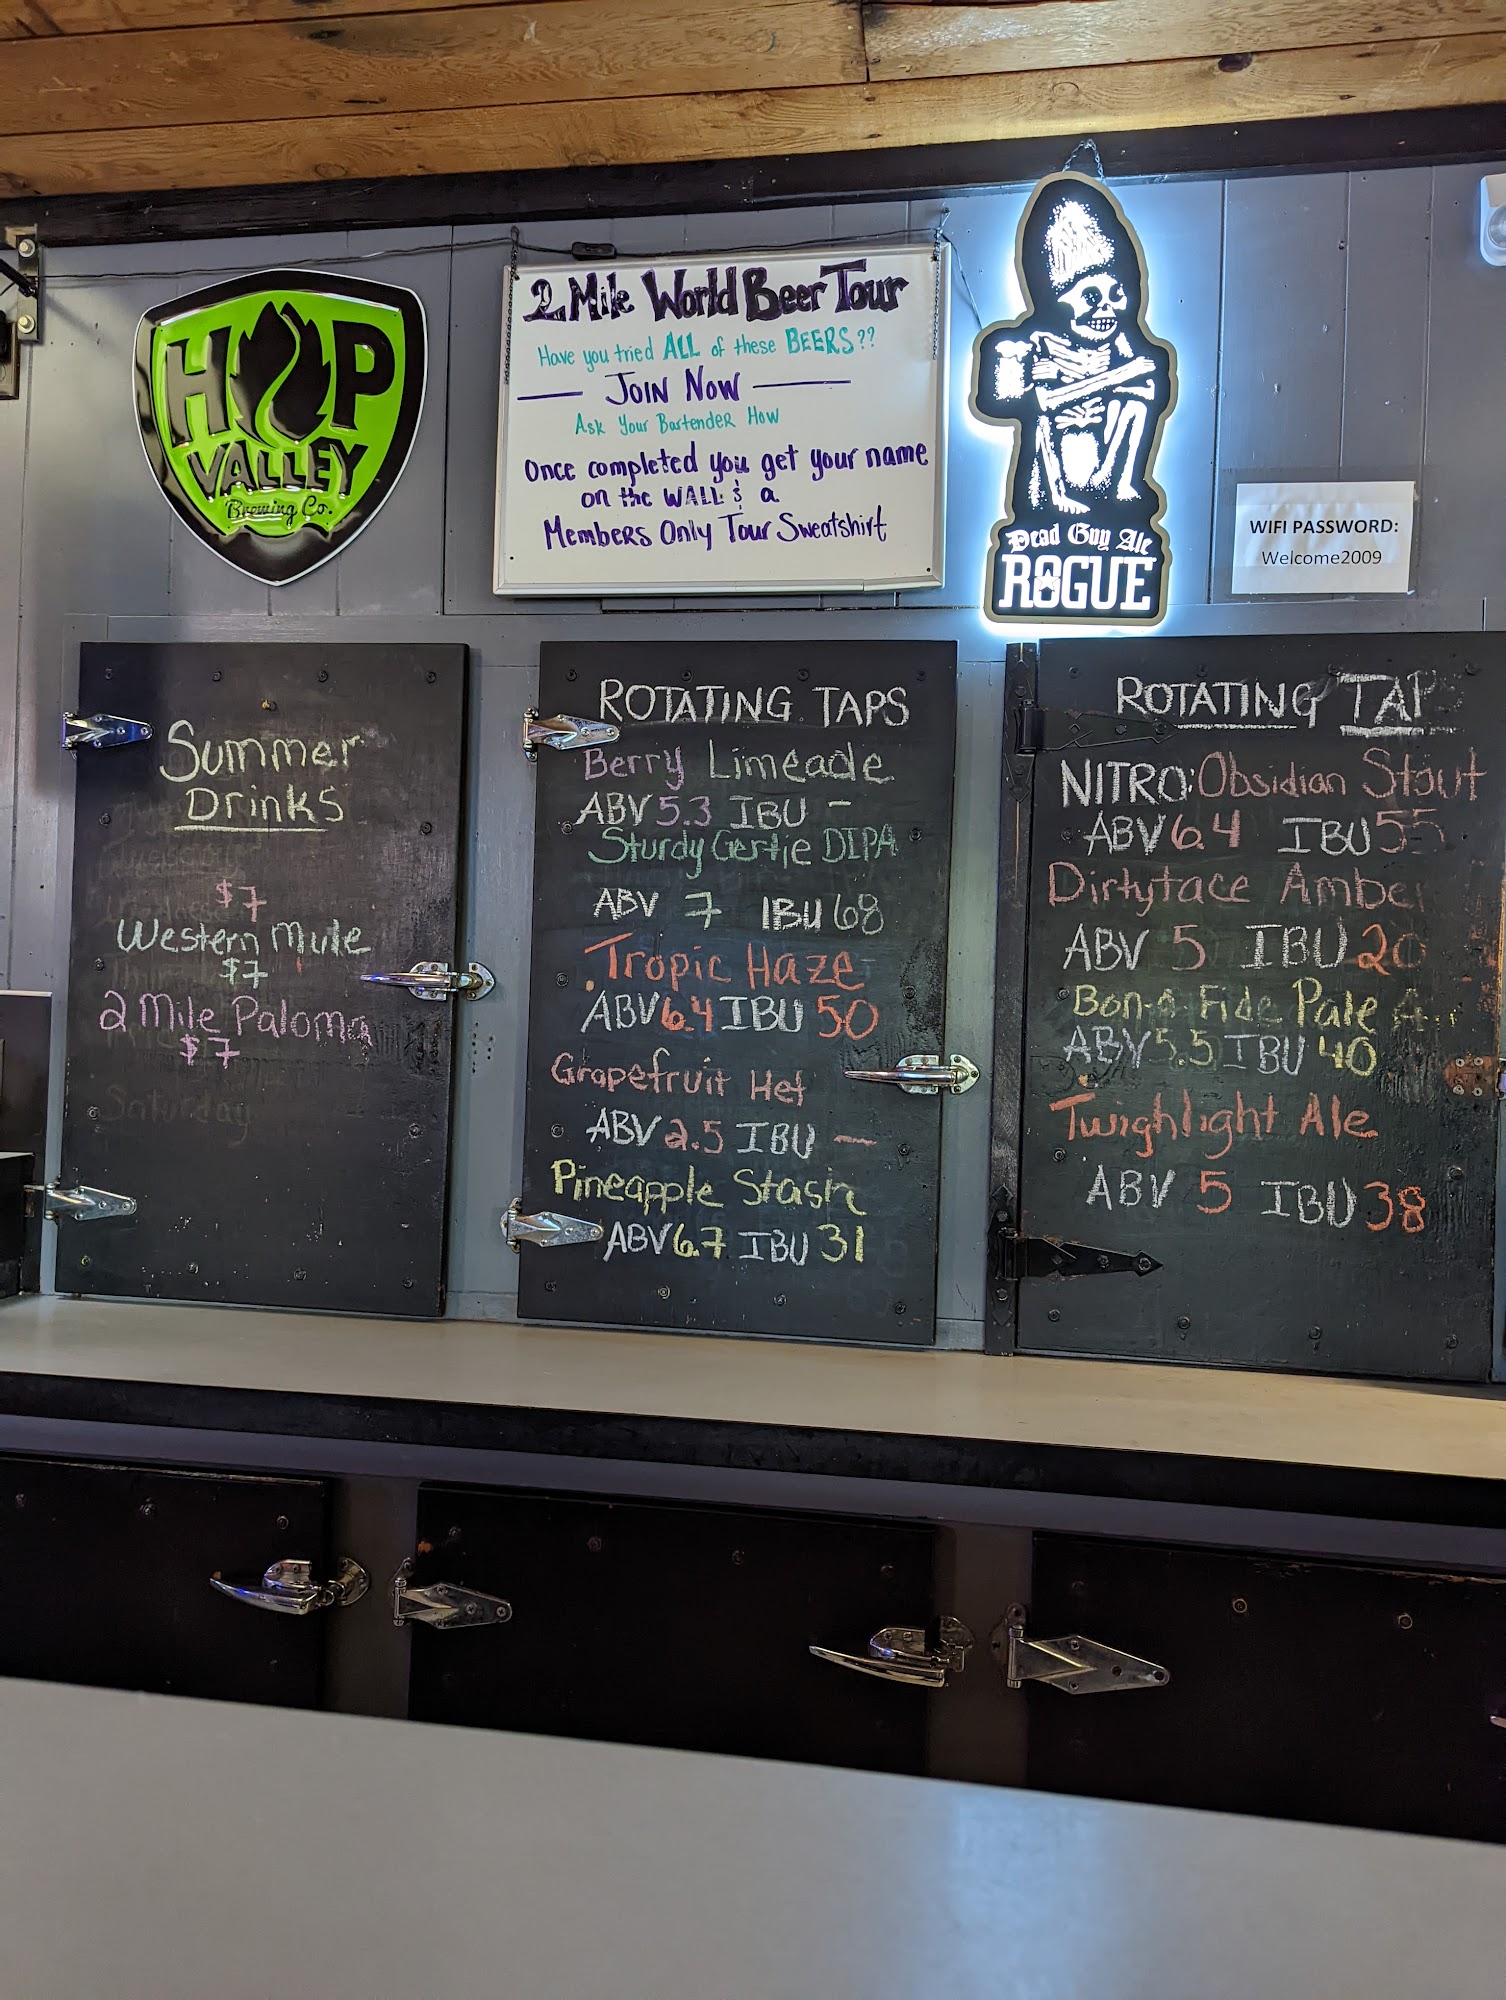 HOP
VALLEY
Brewing Co.
2 Mile World Beer Tour
Have you tried ALL of these BEERS??
JOIN NOW
Ask Your Bartender How
Once completed you get your name
on the WALL & a
Members Only Tour Sweatshirt
Dead Guy Ale
ROGUE
WIFI PASSWORD:
Welcome2009
Summer
Drinks
$7
Western Mule
$7
2 Mile Paloma
$7
Saturday
ROTATING TAPS
Berry Limeade
ABV 5.3 IBU -
Sturdy Gertie DIPA
ABV 7 IBU 68
Tropic Haze
ABV 6.4 IBU 50
Grapefruit Hef
ABV 2.5 IBU -
Pineapple Stash
ABV 6.7 IBU 31
ROTATING TAPS
NITRO: Obsidian Stout
ABV 6.4 IBU 55
Dirtyface Amber
ABV 5 IBU 20
Bon-a Fide Pale A
ABV 5.5 IBU 40
Twighlight Ale
ABV 5 IBU 38